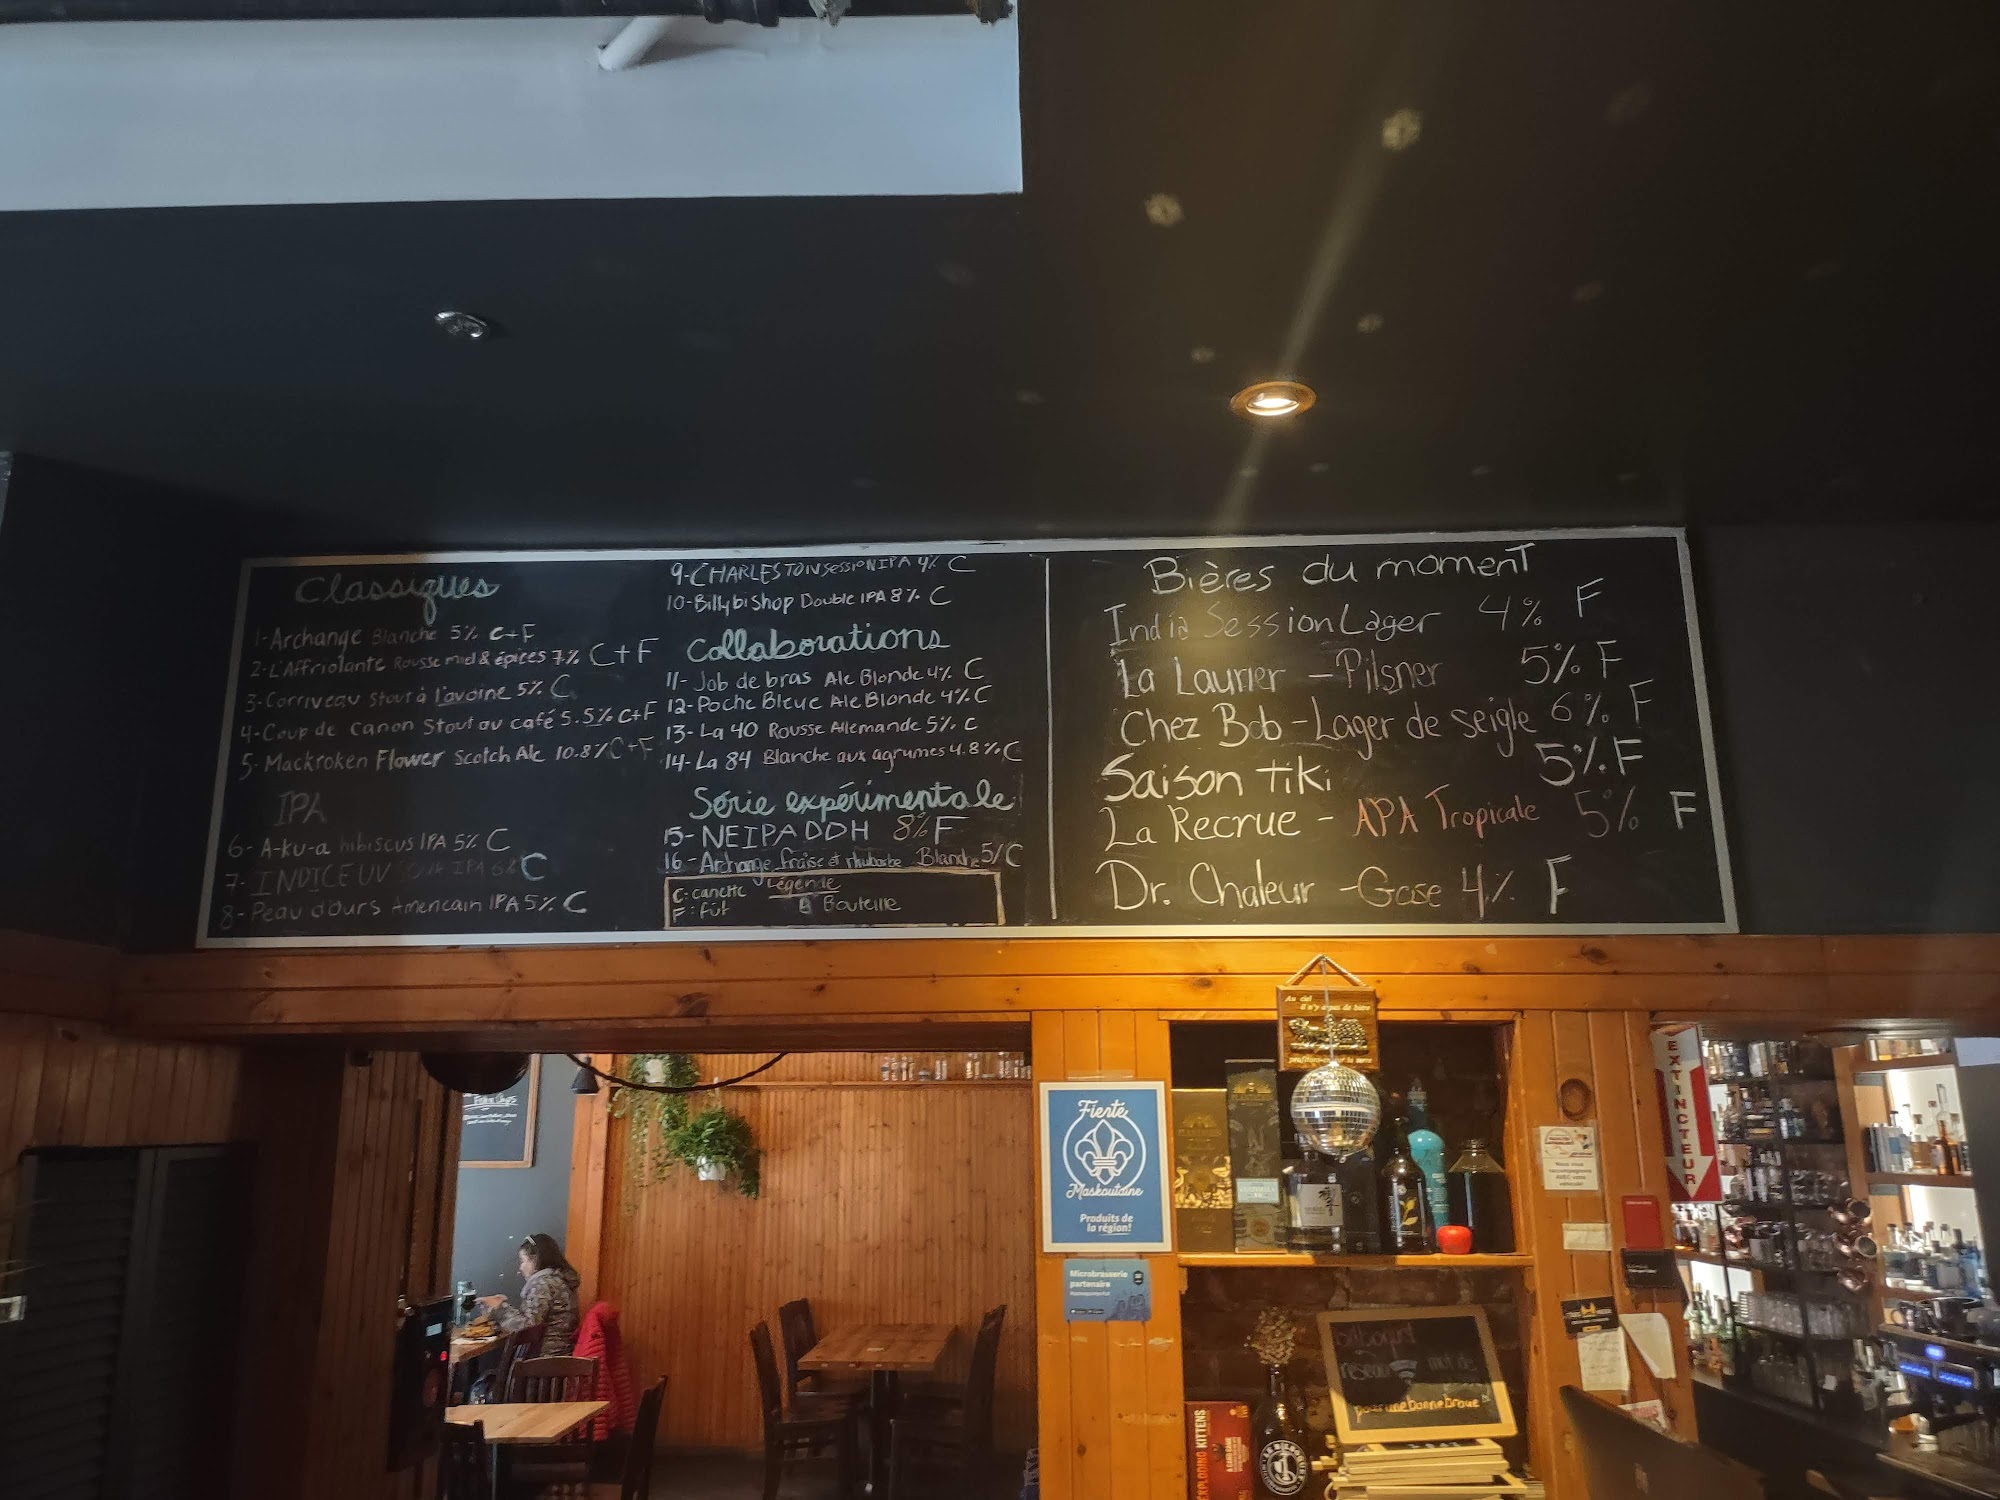 Classiques
1-Archange Blanche 5% C+F
2-L'Affriolante Rousse miel & épices 7% C+F
3-Corriveau stout à l'avoine 5% C
4-Coup de canon Stout au café 5.5% C+F
5-Mackroken Flower Scotch Ale 10.8% C+F
IPA
6-A-ku-a hibiscus IPA 5% C
7-INDICE UV IPA 6% C
8-Peau d'ours American IPA 5% C
9-CHARLESTON Session IPA 4% C
10-Billybishop Double IPA 8% C
Collaborations
11-Job de bras Ale Blonde 4% C
12-Poche Bleue Ale Blonde 4% C
13-La 40 Rousse Allemande 5% C
14-La 84 Blanche aux agrumes 4.8% C
Série expérimentale
15-NEIPA DDH 8% F
16-Archange fraise et rhubarbe Blanche 5% C
Légende
C: canette
F: fût
B Bouteille
Bières du moment
India Session Lager 4% F
La Laurier - Pilsner 5% F
Chez Bob - Lager de seigle 6% F
Saison Tiki 5% F
La Recrue - APA Tropicale 5% F
Dr. Chaleur - Gose 4% F
Au ciel
il n'y a pas de bière
Fierté
Maskoutaine
Produits de
la région!
Microbrasserie
partenaire
EXTINCTEUR
Nous vous
raccompagnons
AVEC votre
véhicule!
réseau mot de
pour une bonne broue
EXPLODING KITTENS